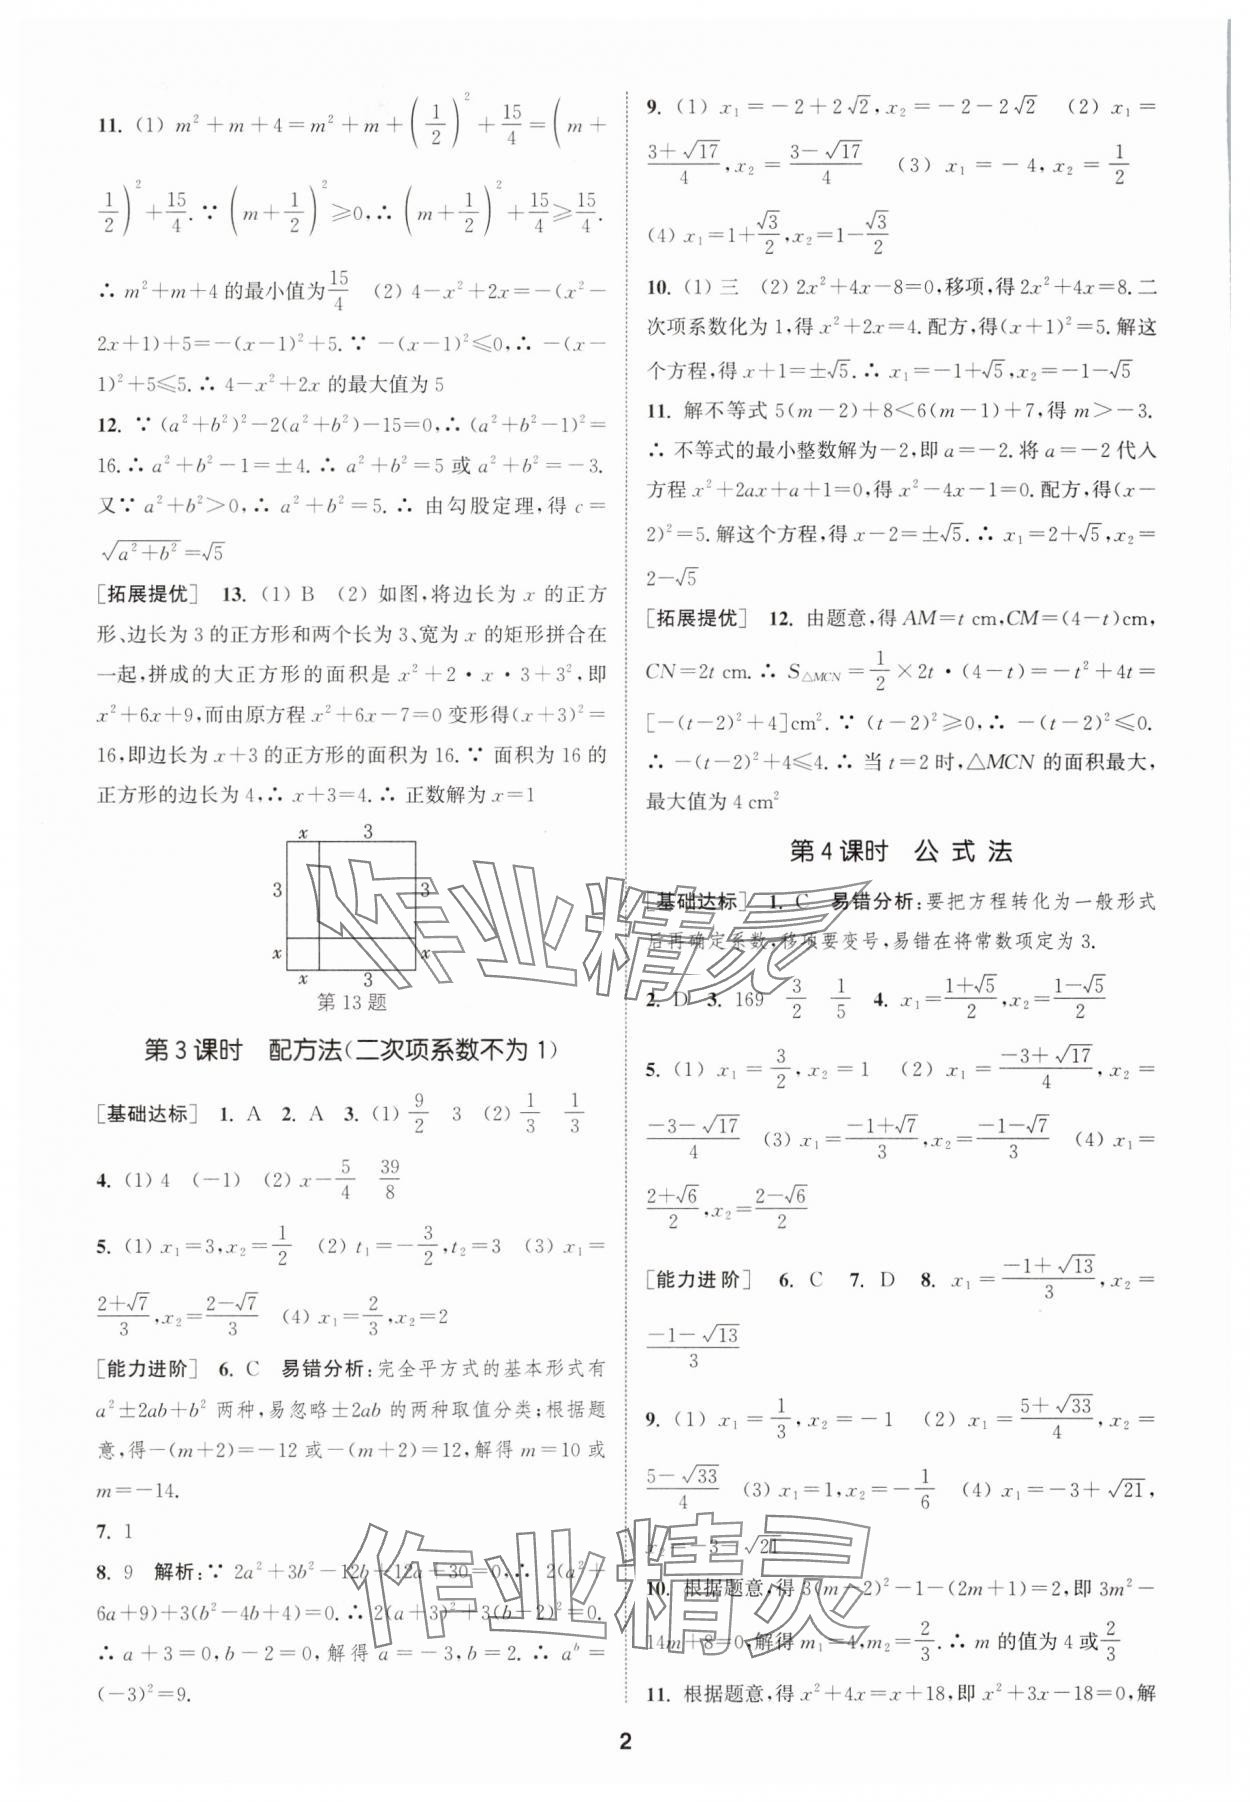 11. (1) m²+m+4=m²+m+(1/2)²+15/4=(m+
1/2)²+15/4.∵(m+1/2)²≥0,∴(m+1/2)²+15/4≥15/4.
∴ m²+m+4 的最小值为15/4 (2) 4-x²+2x=-(x²-
2x+1)+5=-(x-1)²+5.∵ -(x-1)²≤0,∴ -(x-
1)²+5≤5.∴ 4-x²+2x 的最大值为 5
12. ∵ (a²+b²)²-2(a²+b²)-15=0,∴ (a²+b²-1)²=
16.∴ a²+b²-1=±4.∴ a²+b²=5 或 a²+b²=-3.
又∵ a²+b²>0,∴ a²+b²=5.∴ 由勾股定理,得 c=
√(a²+b²)=√5
[拓展提优] 13. (1) B (2) 如图,将边长为 x 的正方
形、边长为 3 的正方形和两个长为 3、宽为 x 的矩形拼合在
一起,拼成的大正方形的面积是 x²+2·x·3+3²,即
x²+6x+9,而由原方程 x²+6x-7=0 变形得(x+3)²=
16,即边长为 x+3 的正方形的面积为 16.∵ 面积为 16 的
正方形的边长为 4,∴ x+3=4.∴ 正数解为 x=1
x 3
3 3
x x
x 3
第 13 题
第 3 课时 配方法(二次项系数不为 1)
[基础达标] 1. A 2. A 3. (1) 9/2 3 (2) 1/3 1/3
4. (1) 4 (-1) (2) x-5/4 39/8
5. (1) x₁=3,x₂=1/2 (2) t₁=-3/2,t₂=3 (3) x₁=
(2+√7)/3,x₂=(2-√7)/3 (4) x₁=2/3,x₂=2
[能力进阶] 6. C 易错分析:完全平方式的基本形式有
a²±2ab+b² 两种,易忽略±2ab 的两种取值分类;根据题
意,得-(m+2)=-12 或-(m+2)=12,解得 m=10 或
m=-14.
7. 1
8. 9 解析:∵ 2a²+3b²-12b+12a+30=0,∴ 2(a²+
6a+9)+3(b²-4b+4)=0.∴ 2(a+3)²+3(b-2)²=0.
∴ a+3=0,b-2=0,解得 a=-3,b=2.∴ aᵇ=
(-3)²=9.
9. (1) x₁=-2+2√2,x₂=-2-2√2 (2) x₁=
(3+√17)/4,x₂=(3-√17)/4 (3) x₁=-4,x₂=1/2
(4) x₁=1+√3/2,x₂=1-√3/2
10. (1) 三 (2) 2x²+4x-8=0,移项,得 2x²+4x=8.二
次项系数化为 1,得 x²+2x=4.配方,得(x+1)²=5.解这
个方程,得 x+1=±√5.∴ x₁=-1+√5,x₂=-1-√5
11. 解不等式 5(m-2)+8<6(m-1)+7,得 m>-3.
∴ 不等式的最小整数解为-2,即 a=-2.将 a=-2 代入
方程 x²+2ax+a+1=0,得 x²-4x-1=0.配方,得(x-
2)²=5.解这个方程,得 x-2=±√5.∴ x₁=2+√5,x₂=
2-√5
[拓展提优] 12. 由题意,得 AM=t cm,CM=(4-t)cm,
CN=2t cm.∴ S△MCN=1/2×2t·(4-t)=-t²+4t=
[-(t-2)²+4]cm².∵ (t-2)²≥0,∴ -(t-2)²≤0.
∴ -(t-2)²+4≤4.∴ 当 t=2 时,△MCN 的面积最大,
最大值为 4 cm²
第 4 课时 公 式 法
[基础达标] 1. C 易错分析:要把方程转化为一般形式
后再确定系数,移项要变号,易错在将常数项定为 3.
2. D 3. 169 3/2 1/5 4. x₁=(1+√5)/2,x₂=(1-√5)/2
5. (1) x₁=3/2,x₂=1 (2) x₁=(-3+√17)/4,x₂=
(-3-√17)/4 (3) x₁=(-1+√7)/3,x₂=(-1-√7)/3 (4) x₁=
(2+√6)/2,x₂=(2-√6)/2
[能力进阶] 6. C 7. D 8. x₁=(-1+√13)/3,x₂=
(-1-√13)/3
9. (1) x₁=1/3,x₂=-1 (2) x₁=(5+√33)/4,x₂=
(5-√33)/4 (3) x₁=1,x₂=-1/6 (4) x₁=-3+√21,
x₂=-3-√21
10. 根据题意,得 3(m-2)²-1-(2m+1)=2,即 3m²-
14m+8=0,解得 m₁=4,m₂=2/3.∴ m 的值为 4 或2/3
11. 根据题意,得 x²+4x=x+18,即 x²+3x-18=0,解
2
作业精灵
作业精灵